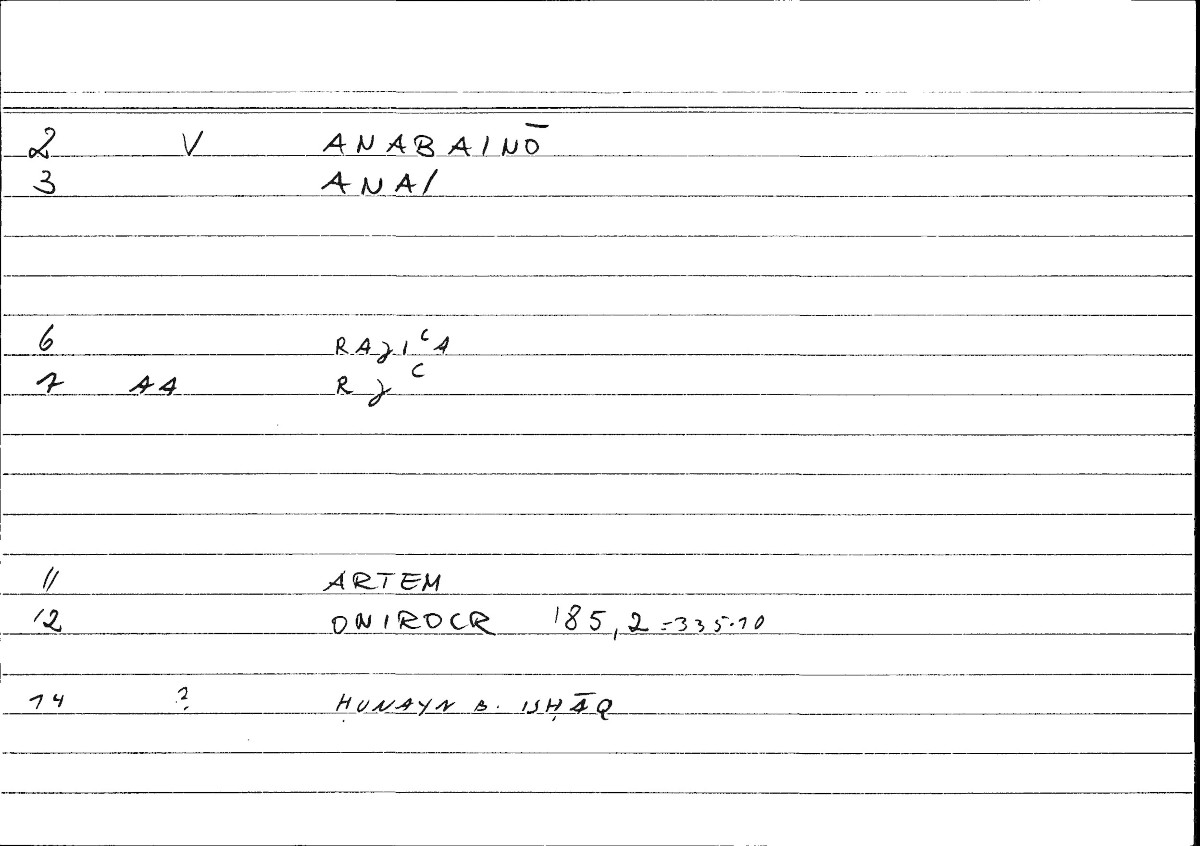 2 V ANABAINŌ
3 ANA/
6 RAJIᶜA
7 AA R J ᶜ
11 ARTEM
12 ONIROCR 185,2=335.10
14 ? ḤUNAYN B. ISḤĀQ